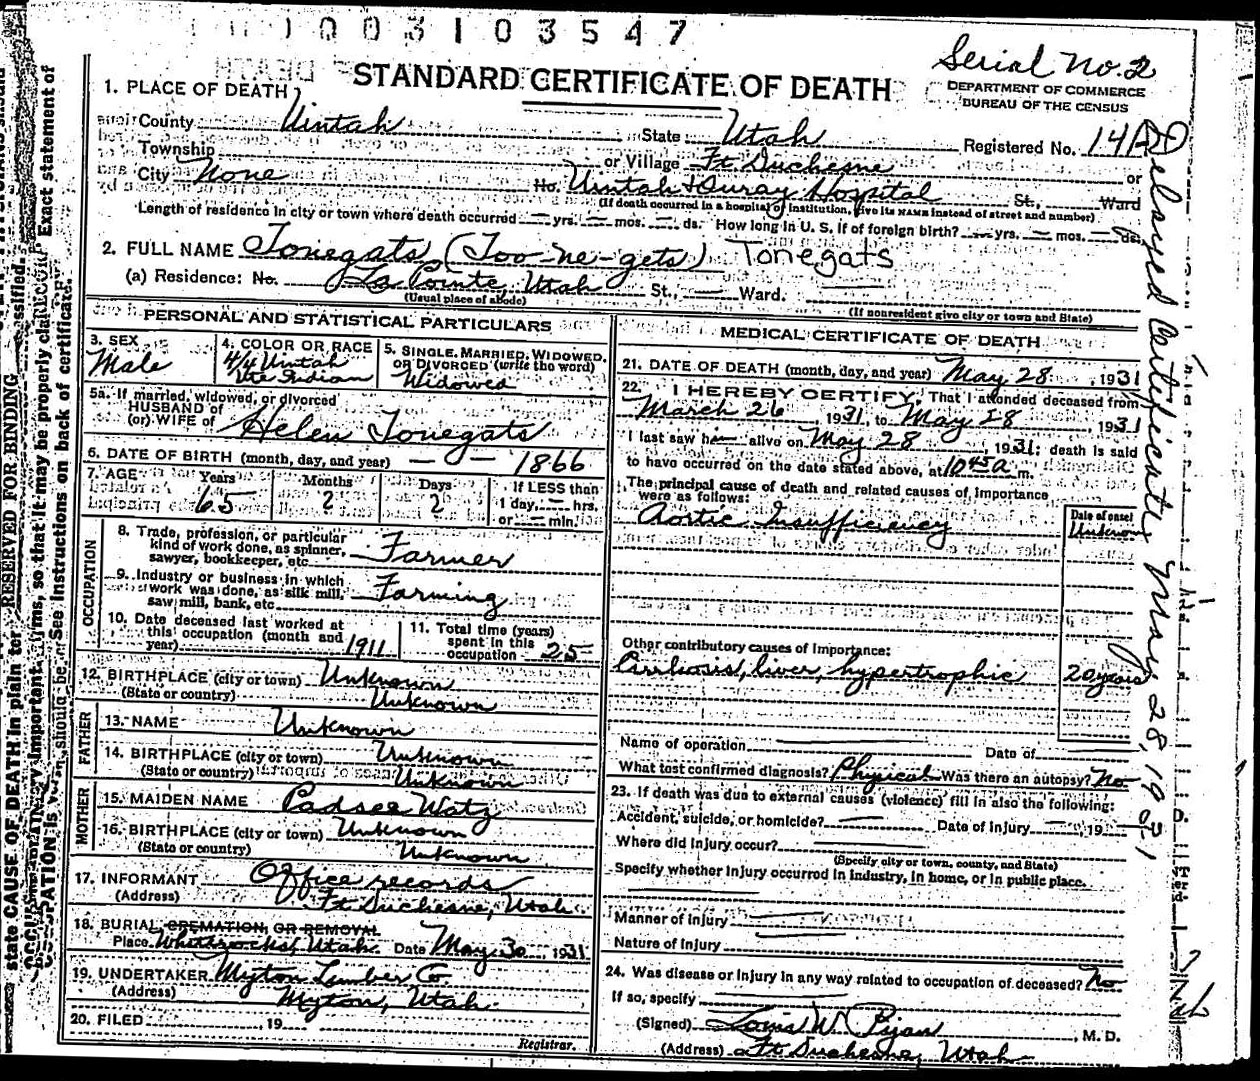 0003103547
Serial No. 2
STANDARD CERTIFICATE OF DEATH
DEPARTMENT OF COMMERCE
BUREAU OF THE CENSUS
1. PLACE OF DEATH
County Uintah State Utah Registered No. 141
Township or Village Ft. Duchesne or
City None No. Uintah & Ouray Hospital St., Ward
(If death occurred in a hospital or institution, give its NAME instead of street and number)
Length of residence in city or town where death occurred — yrs. — mos. — ds. How long in U. S. if of foreign birth? — yrs. — mos. — ds.
2. FULL NAME Tonegats (Too-ne-gets) Tonegats
(a) Residence: No. La Pointe, Utah St., — Ward.
(Usual place of abode) (If nonresident give city or town and State)
PERSONAL AND STATISTICAL PARTICULARS
3. SEX
Male
4. COLOR OR RACE
4/4 Uintah
Ute Indian
5. SINGLE, MARRIED, WIDOWED,
OR DIVORCED (write the word)
Widowed
5a. If married, widowed, or divorced
HUSBAND of
(or) WIFE of Helen Tonegats
6. DATE OF BIRTH (month, day, and year) — — 1866
7. AGE Years Months Days If LESS than
65 2 2 1 day, — hrs.
or — min.
OCCUPATION
8. Trade, profession, or particular
kind of work done, as spinner,
sawyer, bookkeeper, etc. Farmer
9. Industry or business in which
work was done, as silk mill,
saw mill, bank, etc. Farming
10. Date deceased last worked at
this occupation (month and
year) 1911
11. Total time (years)
spent in this
occupation 25
12. BIRTHPLACE (city or town) Unknown
(State or country) Unknown
FATHER
13. NAME Unknown
14. BIRTHPLACE (city or town) Unknown
(State or country) Unknown
MOTHER
15. MAIDEN NAME Padsee Watz
16. BIRTHPLACE (city or town) Unknown
(State or country) Unknown
17. INFORMANT Office records
(Address) Ft. Duchesne, Utah.
18. BURIAL, CREMATION, OR REMOVAL
Place Whiterocks, Utah. Date May 30, 1931
19. UNDERTAKER Myton Lumber Co.
(Address) Myton, Utah.
20. FILED , 19
Registrar.
MEDICAL CERTIFICATE OF DEATH
21. DATE OF DEATH (month, day, and year) May 28, 1931
22. I HEREBY CERTIFY, That I attended deceased from
March 26 1931, to May 28, 1931
I last saw h— alive on May 28, 1931; death is said
to have occurred on the date stated above, at 10 45a m.
The principal cause of death and related causes of importance
were as follows:
Date of onset
Aortic Insufficiency Unknown
Other contributory causes of importance:
Cirrhosis, liver, hypertrophic 20 years
Name of operation Date of
What test confirmed diagnosis? Physical Was there an autopsy? No
23. If death was due to external causes (violence) fill in also the following:
Accident, suicide, or homicide? — Date of injury — 19
Where did injury occur?
(Specify city or town, county, and State)
Specify whether injury occurred in industry, in home, or in public place.
Manner of injury
Nature of injury
24. Was disease or injury in any way related to occupation of deceased? No
If so, specify
(Signed) Louis W. , M. D.
(Address) Ft. Duchesne, Utah
Delayed Certificate May 28, 1931
RESERVED FOR BINDING
state CAUSE OF DEATH in plain terms, so that it may be properly classified. Exact statement of
OCCUPATION is very important. See instructions on back of certificate.